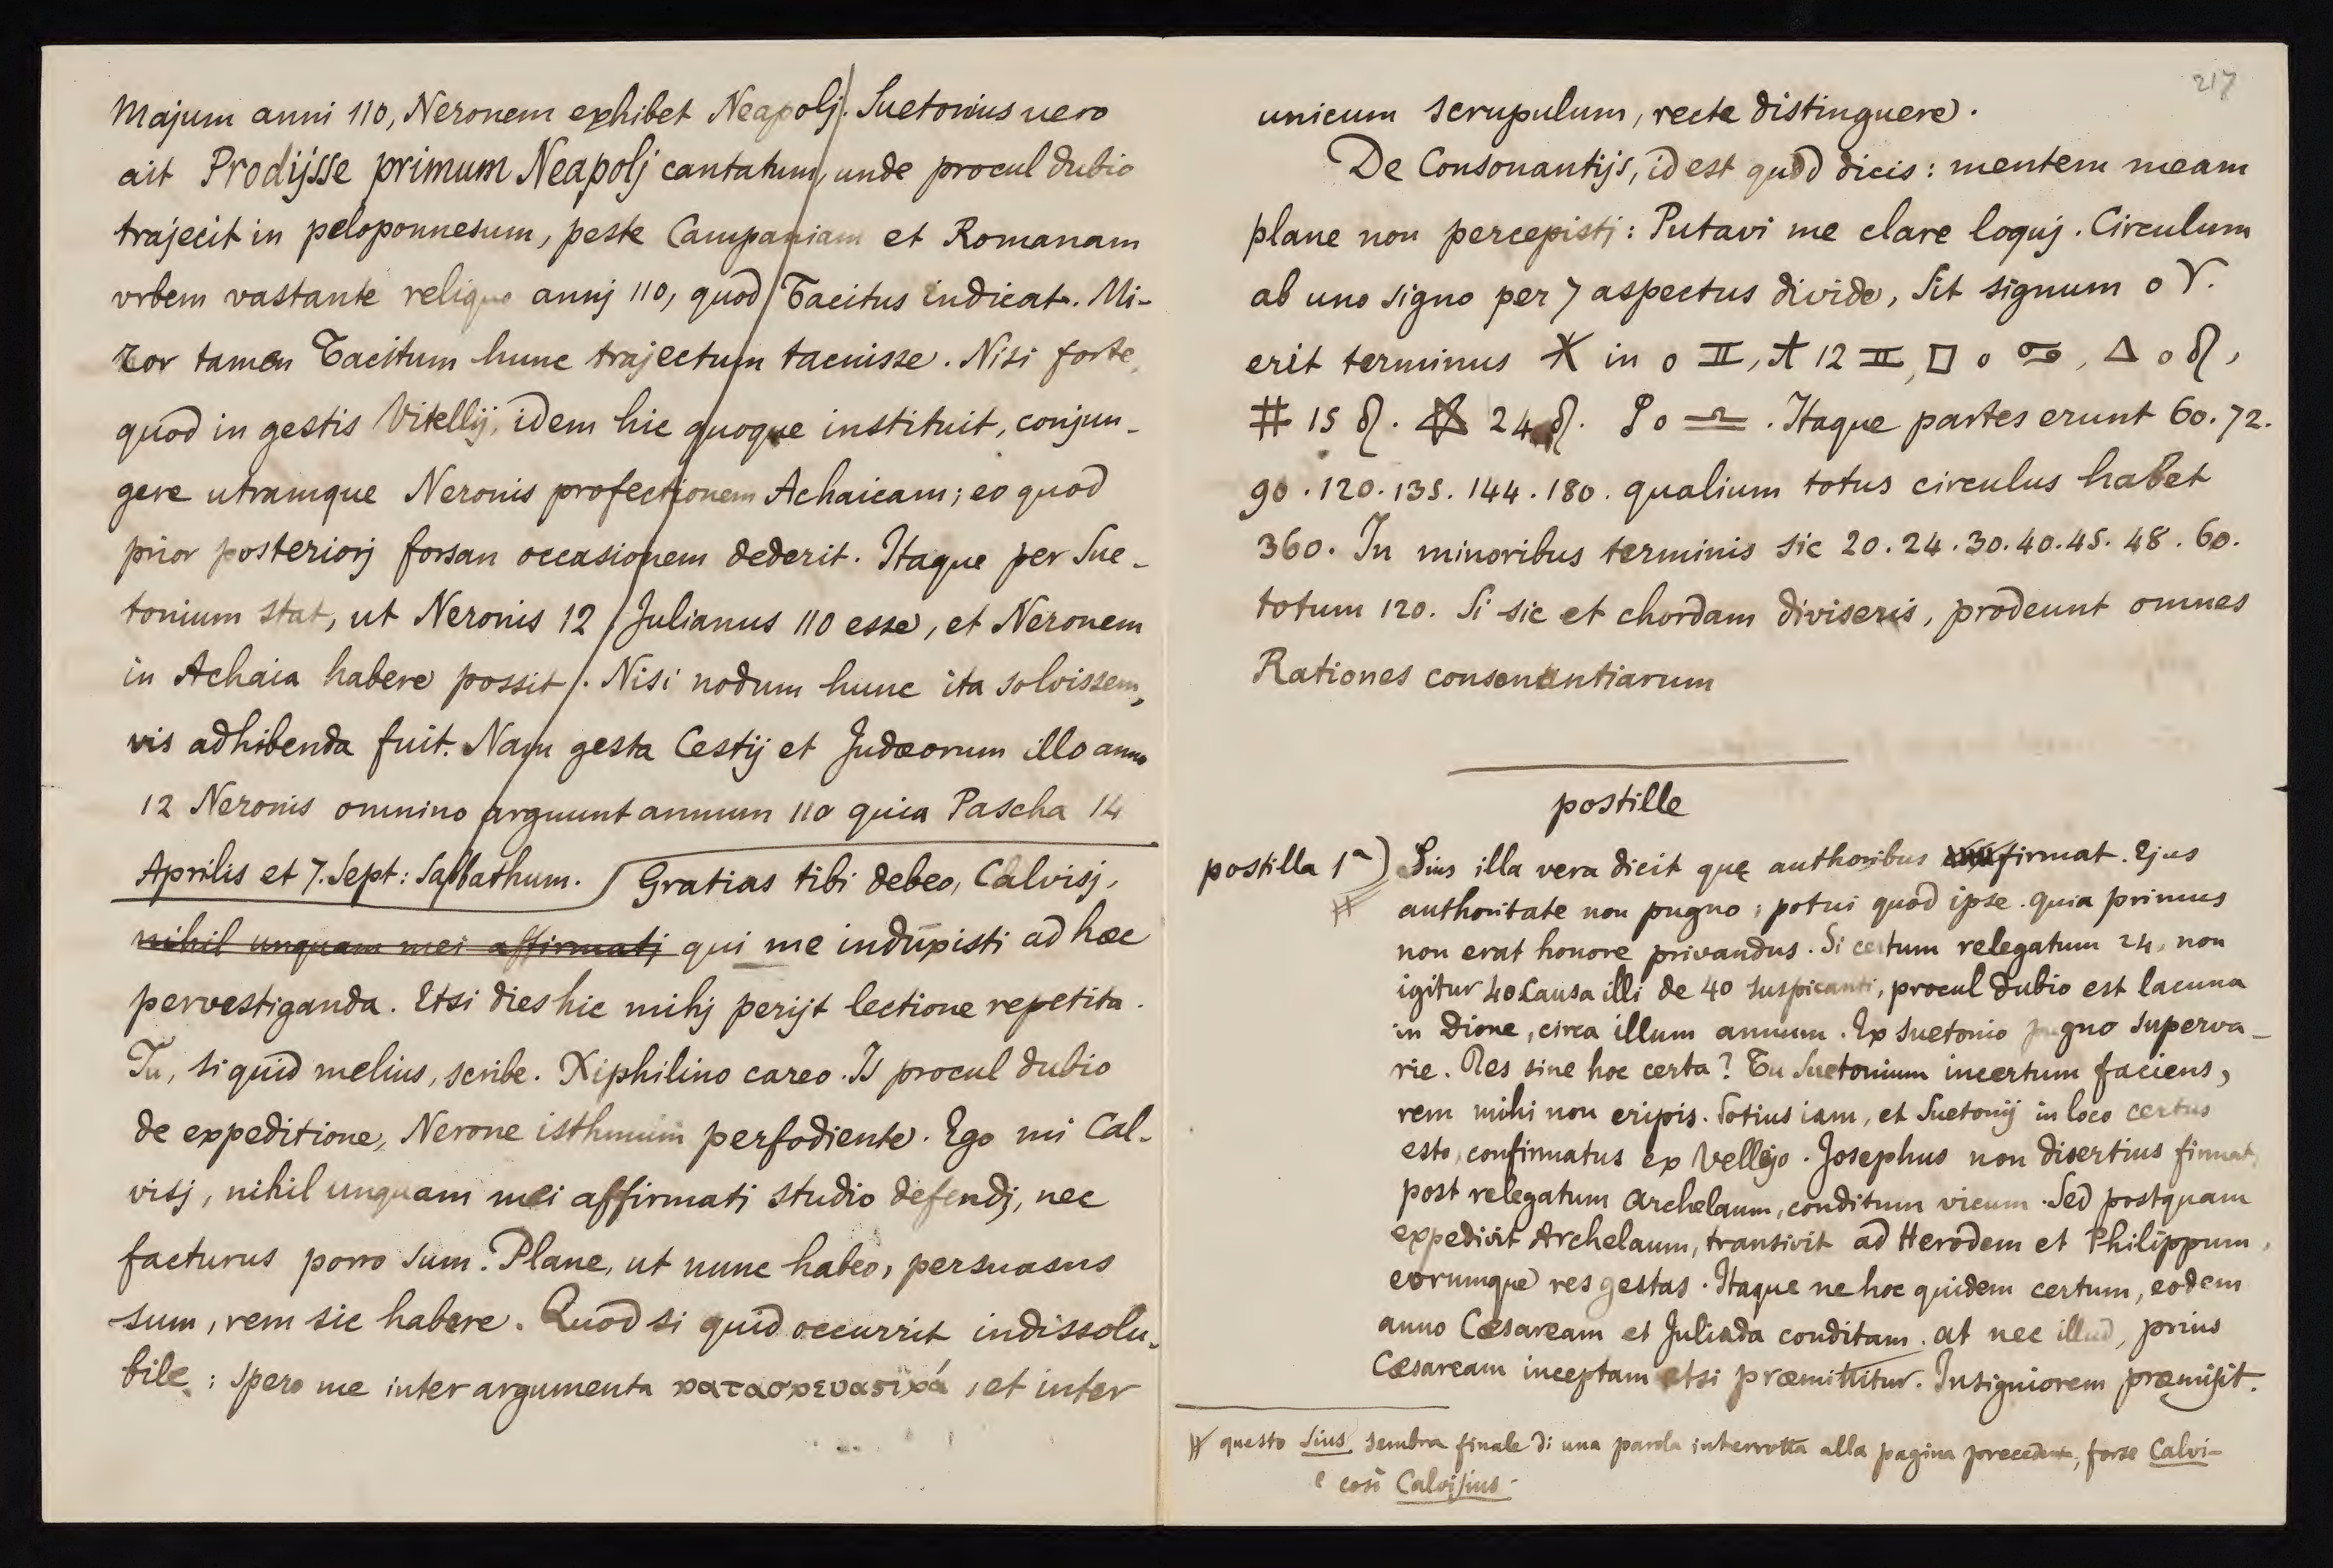 Majum anni 110, Neronem exhibet Neapolj. Suetonius vero
ait Prodijsse primum Neapolj cantatum, unde procul dubio
trajecit in peloponnesum, peste Campaniam et Romanam
vrbem vastante reliquo annj 110, quod Tacitus indicat. Mi-
ror tamen Tacitum hunc trajectum tacuisse. Nisi forte,
quod in gestis Vitellij, idem hic quoque instituit, conjun-
gere utramque Neronis profectionem Achaicam; eo quod
prior posteriorj forsan occasionem dederit. Itaque per Sue-
tonium stat, ut Neronis 12 Julianus 110 esse, et Neronem
in Achaia habere possit. Nisi nodum hunc ita solvissem,
vis adhibenda fuit. Nam gesta Cestij et Judæorum illo anno
12 Neronis omnino arguunt annum 110 quia Pascha 14
Aprilis et 7. Sept: Sabbathum. Gratias tibi debeo, Calvisj,
nihil unquam mei affirmatj qui me induxisti ad hæc
pervestiganda. Etsi dies hic mihj perijt lectione repetita.
Tu, si quid melius, scribe. Xiphilino careo. Is procul dubio
de expeditione, Nerone isthmum perfodiente. Ego mi Cal-
visj, nihil unquam mei affirmatj studio defendj, nec
facturus porro sum. Plane, ut nunc habeo, persuasus
sum, rem sic habere. Quod si quid occurrit indissolu-
bile: spero me inter argumenta κατασκευαστικά, et inter
217
unicum scrupulum, recte distinguere.
De Consonantijs, id est quod dicis: mentem meam
plane non percepistj: Putavi me clare loquj. Circulum
ab uno signo per 7 aspectus divido, Sit signum 0 ♈.
erit terminus ⚹ in 0 ♊, ⛤ 12 ♊, □ 0 ♋, △ 0 ♌,
# 15 ♌. ☆ 24 ♌. ☍ 0 ♎. Itaque partes erunt 60. 72.
90. 120. 135. 144. 180. qualium totus circulus habet
360. In minoribus terminis sic 20. 24. 30. 40. 45. 48. 60.
totum 120. Si sic et chordam diviseris, prodeunt omnes
Rationes consonantiarum
postille
postilla 1ª) Sius illa vera dicit quę authoribus firmat. Ejus
# authoritate non pugno; potui quod ipse. quia primus
non erat honore privandus. Si certum relegatum 24, non
igitur 40 Causa illi de 40 suspicanti, procul dubio est lacuna
in Dione, circa illum annum. Ex Suetonio pugno superva-
rie. Res sine hoc certa? Tu Suetonium incertum faciens,
rem mihi non eripis. Totius iam, et Suetonij in loco certus
esto, confirmatus ex Vellejo. Josephus non disertius firmat,
post relegatum Archelaum, conditum vicum. Sed postquam
expedivit Archelaum, transivit ad Herodem et Philippum,
eorumque res gestas. Itaque ne hoc quidem certum, eodem
anno Cæsaream et Juliada conditam. at nec illud, prius
Cæsaream inceptam etsi præmittitur. Insigniorem præmisit.
# questo Sius sembra finale di una parola interrotta alla pagina precedente, forse Calvi-
e così Calvisius.